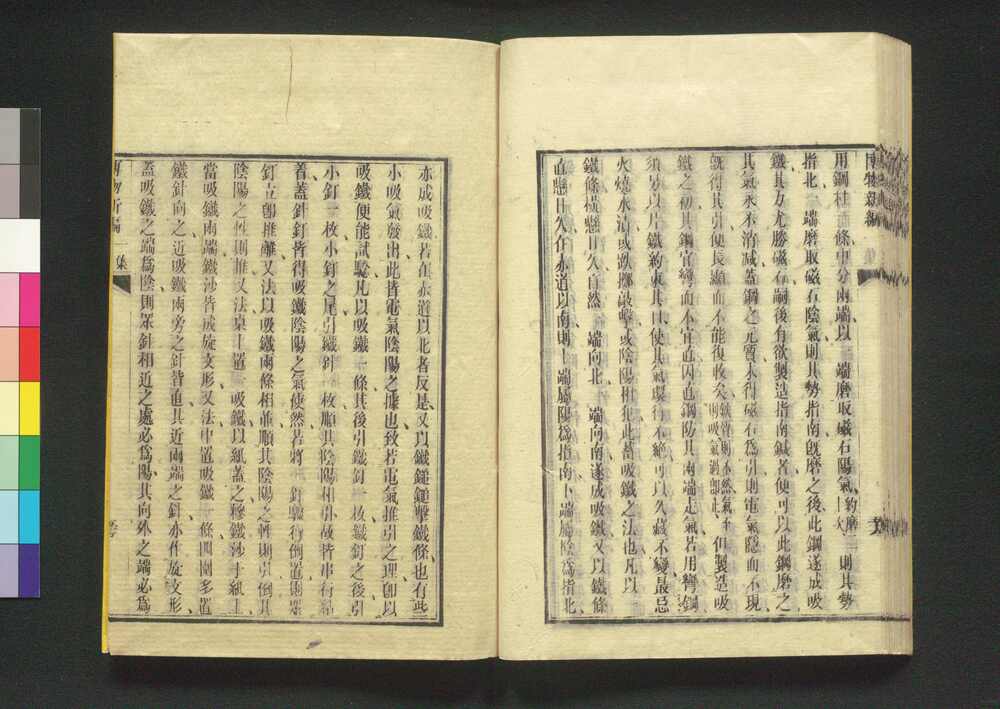 博物新編
用鋼柱一條中分兩端以一端磨取磁石陽氣約磨二三十次則其勢
指北一端磨取磁石陰氣則其勢指南旣磨之後此鋼遂成吸
鐵其力尤勝磁石嗣後有欲製造指南鍼者便可以此鋼磨之
其氣永不消減蓋鋼之元質未得磁石爲引則電氣隱而不現
旣得其引便長顯而不能復收矣鐵質則不然氣來則吸氣過卽止但製造吸
鐵之初其鋼宜彎而不宜直因直鋼防其兩端走氣若用彎鋼
須另以片鐵約束其口使其氣環行不絕可以久藏不變最忌
火燒水淸或跌擲敲擊或陰陽相犯此蓄吸鐵之法也凡以
鐵條橫懸日久自然一端向北一端向南遂成吸鐵又以鐵條
直懸日久在赤道以南則上端屬陽爲指南下端屬陰爲指北
亦成吸鐵若在赤道以北者反是又以鐵鎚鎚擊鐵條也有些
小吸氣發出此皆電氣陰陽之據也致若電氣推引之理卽以
吸鐵便能試驗凡以吸鐵一條其後引鐵釘一枚鐵釘之後引
小釘一枚小釘之尾引鐵針一枚順其陰陽相引故皆串行粘
着蓋針釘皆得吸鐵陰陽之氣使然若將一針驟行倒置則衆
釘立卽推離又法以吸鐵兩條相並順其陰陽之性則引倒其
陰陽之性則推又法桌上置一吸鐵以紙蓋之糝鐵沙于紙上
當吸鐵兩端鐵沙皆成旋文形又法中置吸鐵一條四圍多置
鐵針向之近吸鐵兩旁之針皆直其近兩端之針亦作旋文形
蓋吸鐵之端爲陰則衆針相近之處必爲陽其向外之端必爲
博物新編
一集